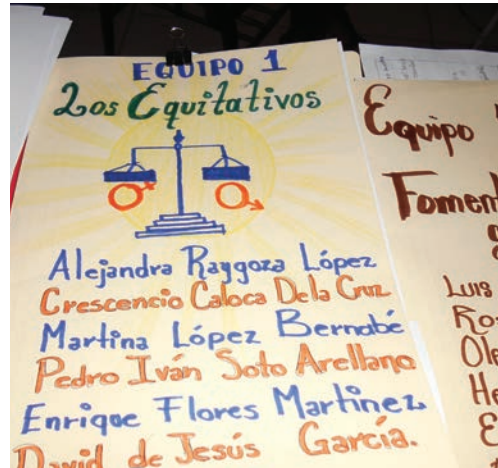 EQUIPO 1
Los Equitativos
Alejandra Raygoza López
Crescencio Caloca De la Cruz
Martina López Bernabé
Pedro Iván Soto Arellano
Enrique Flores Martinez
David de Jesús García.
Equipo
Fomen
Luis